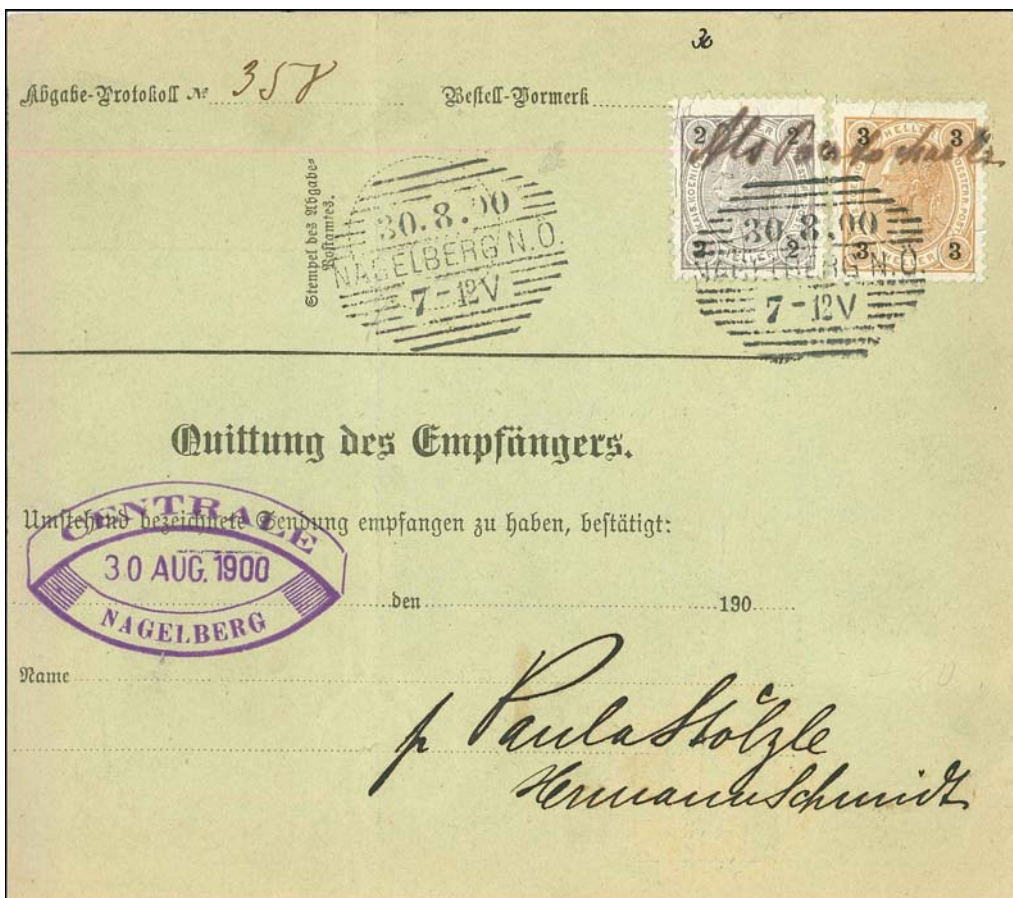 30
Abgabe-Protokoll № 358 Bestell-Vormerk
Stempel des Abgabe-
Postamtes.
30.8.00
NAGELBERG N.Ö.
7-12V
2 2
HELLER
2 2
3 HELLER 3
3 HELLER 3
Als Porto
30.8.00
NAGELBERG N.Ö.
7-12V
Quittung des Empfängers.
Umstehend bezeichnete Sendung empfangen zu haben, bestätigt:
CENTRALE
30 AUG. 1900
NAGELBERG
den 190
Name
p Paula Stölzle
Hermann Schmidt